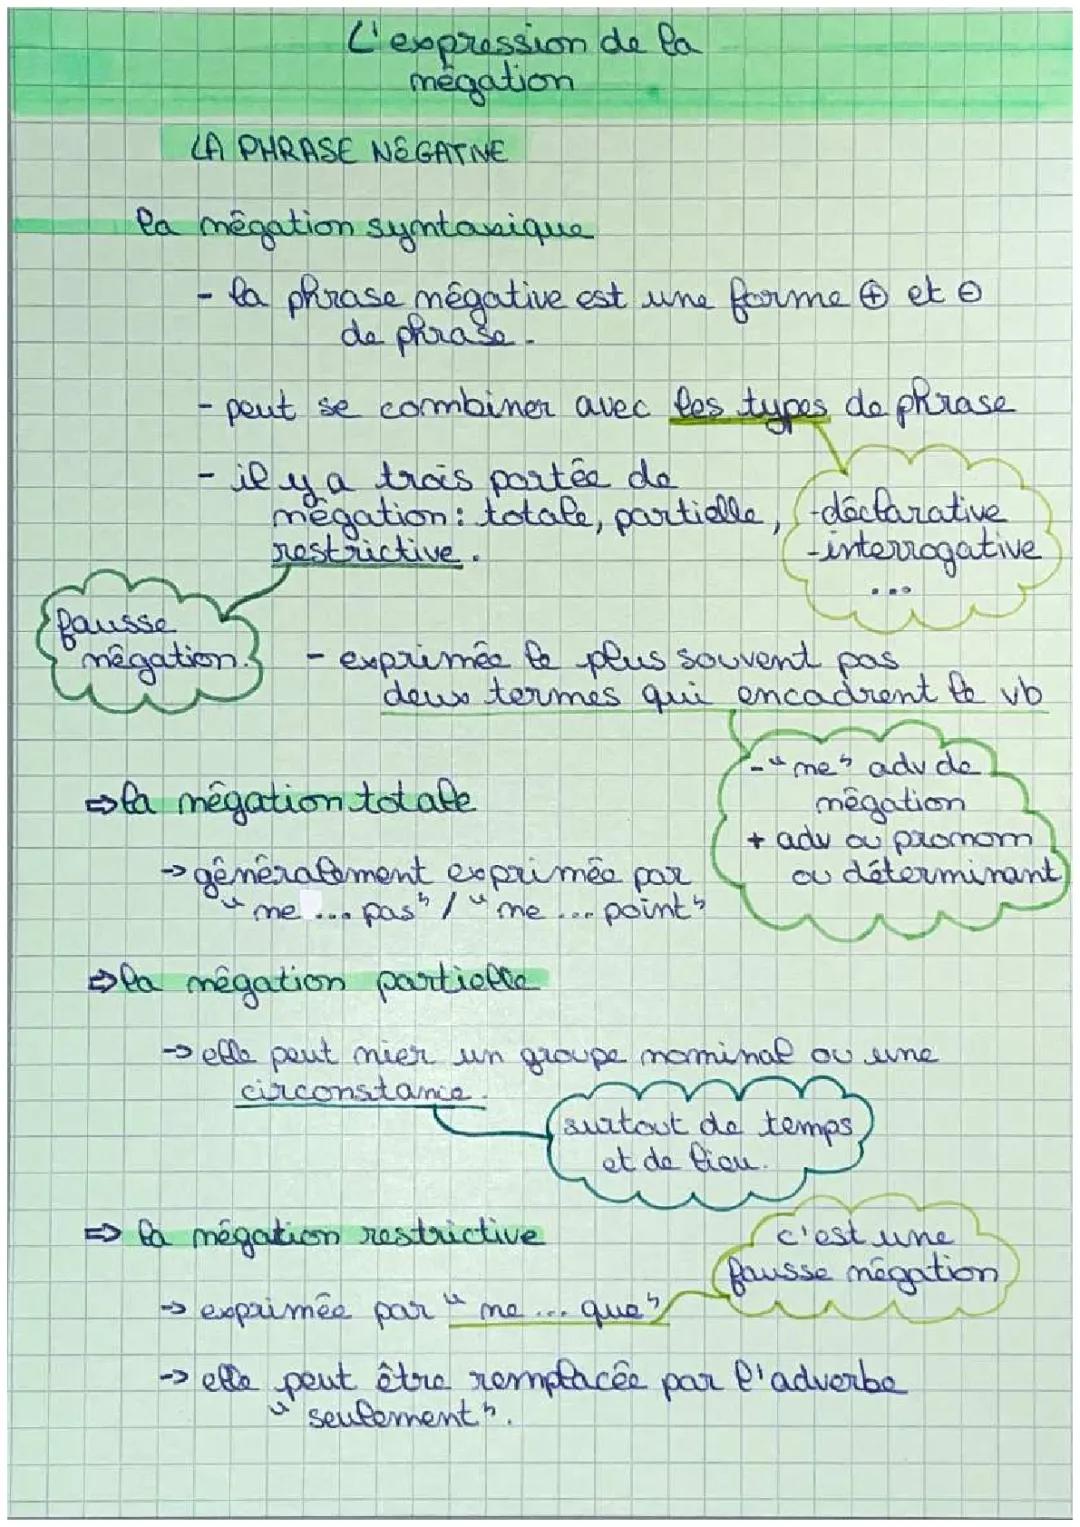 L'expression de la
négation
LA PHRASE NÉGATIVE
la négation syntaxique
- la phrase négative est une forme ⊕ et ⊖
de phrase.
- peut se combiner avec les types de phrase
- déclarative
- interrogative
...
- il y a trois portée de
négation : totale, partielle,
restrictive.
fausse
négation.
- exprimée le plus souvent pas
deux termes qui encadrent le vb
- "ne" adv de
négation
+ adv ou pronom
ou déterminant
⇒ la négation totale
→ généralement exprimée par
"ne ... pas" / "ne ... point"
⇒ la négation partielle
→ elle peut nier un groupe nominal ou une
circonstance.
surtout de temps
et de lieu.
⇒ la négation restrictive
c'est une
fausse négation
→ exprimée par "ne ... que"
→ elle peut être remplacée par l'adverbe
"seulement".